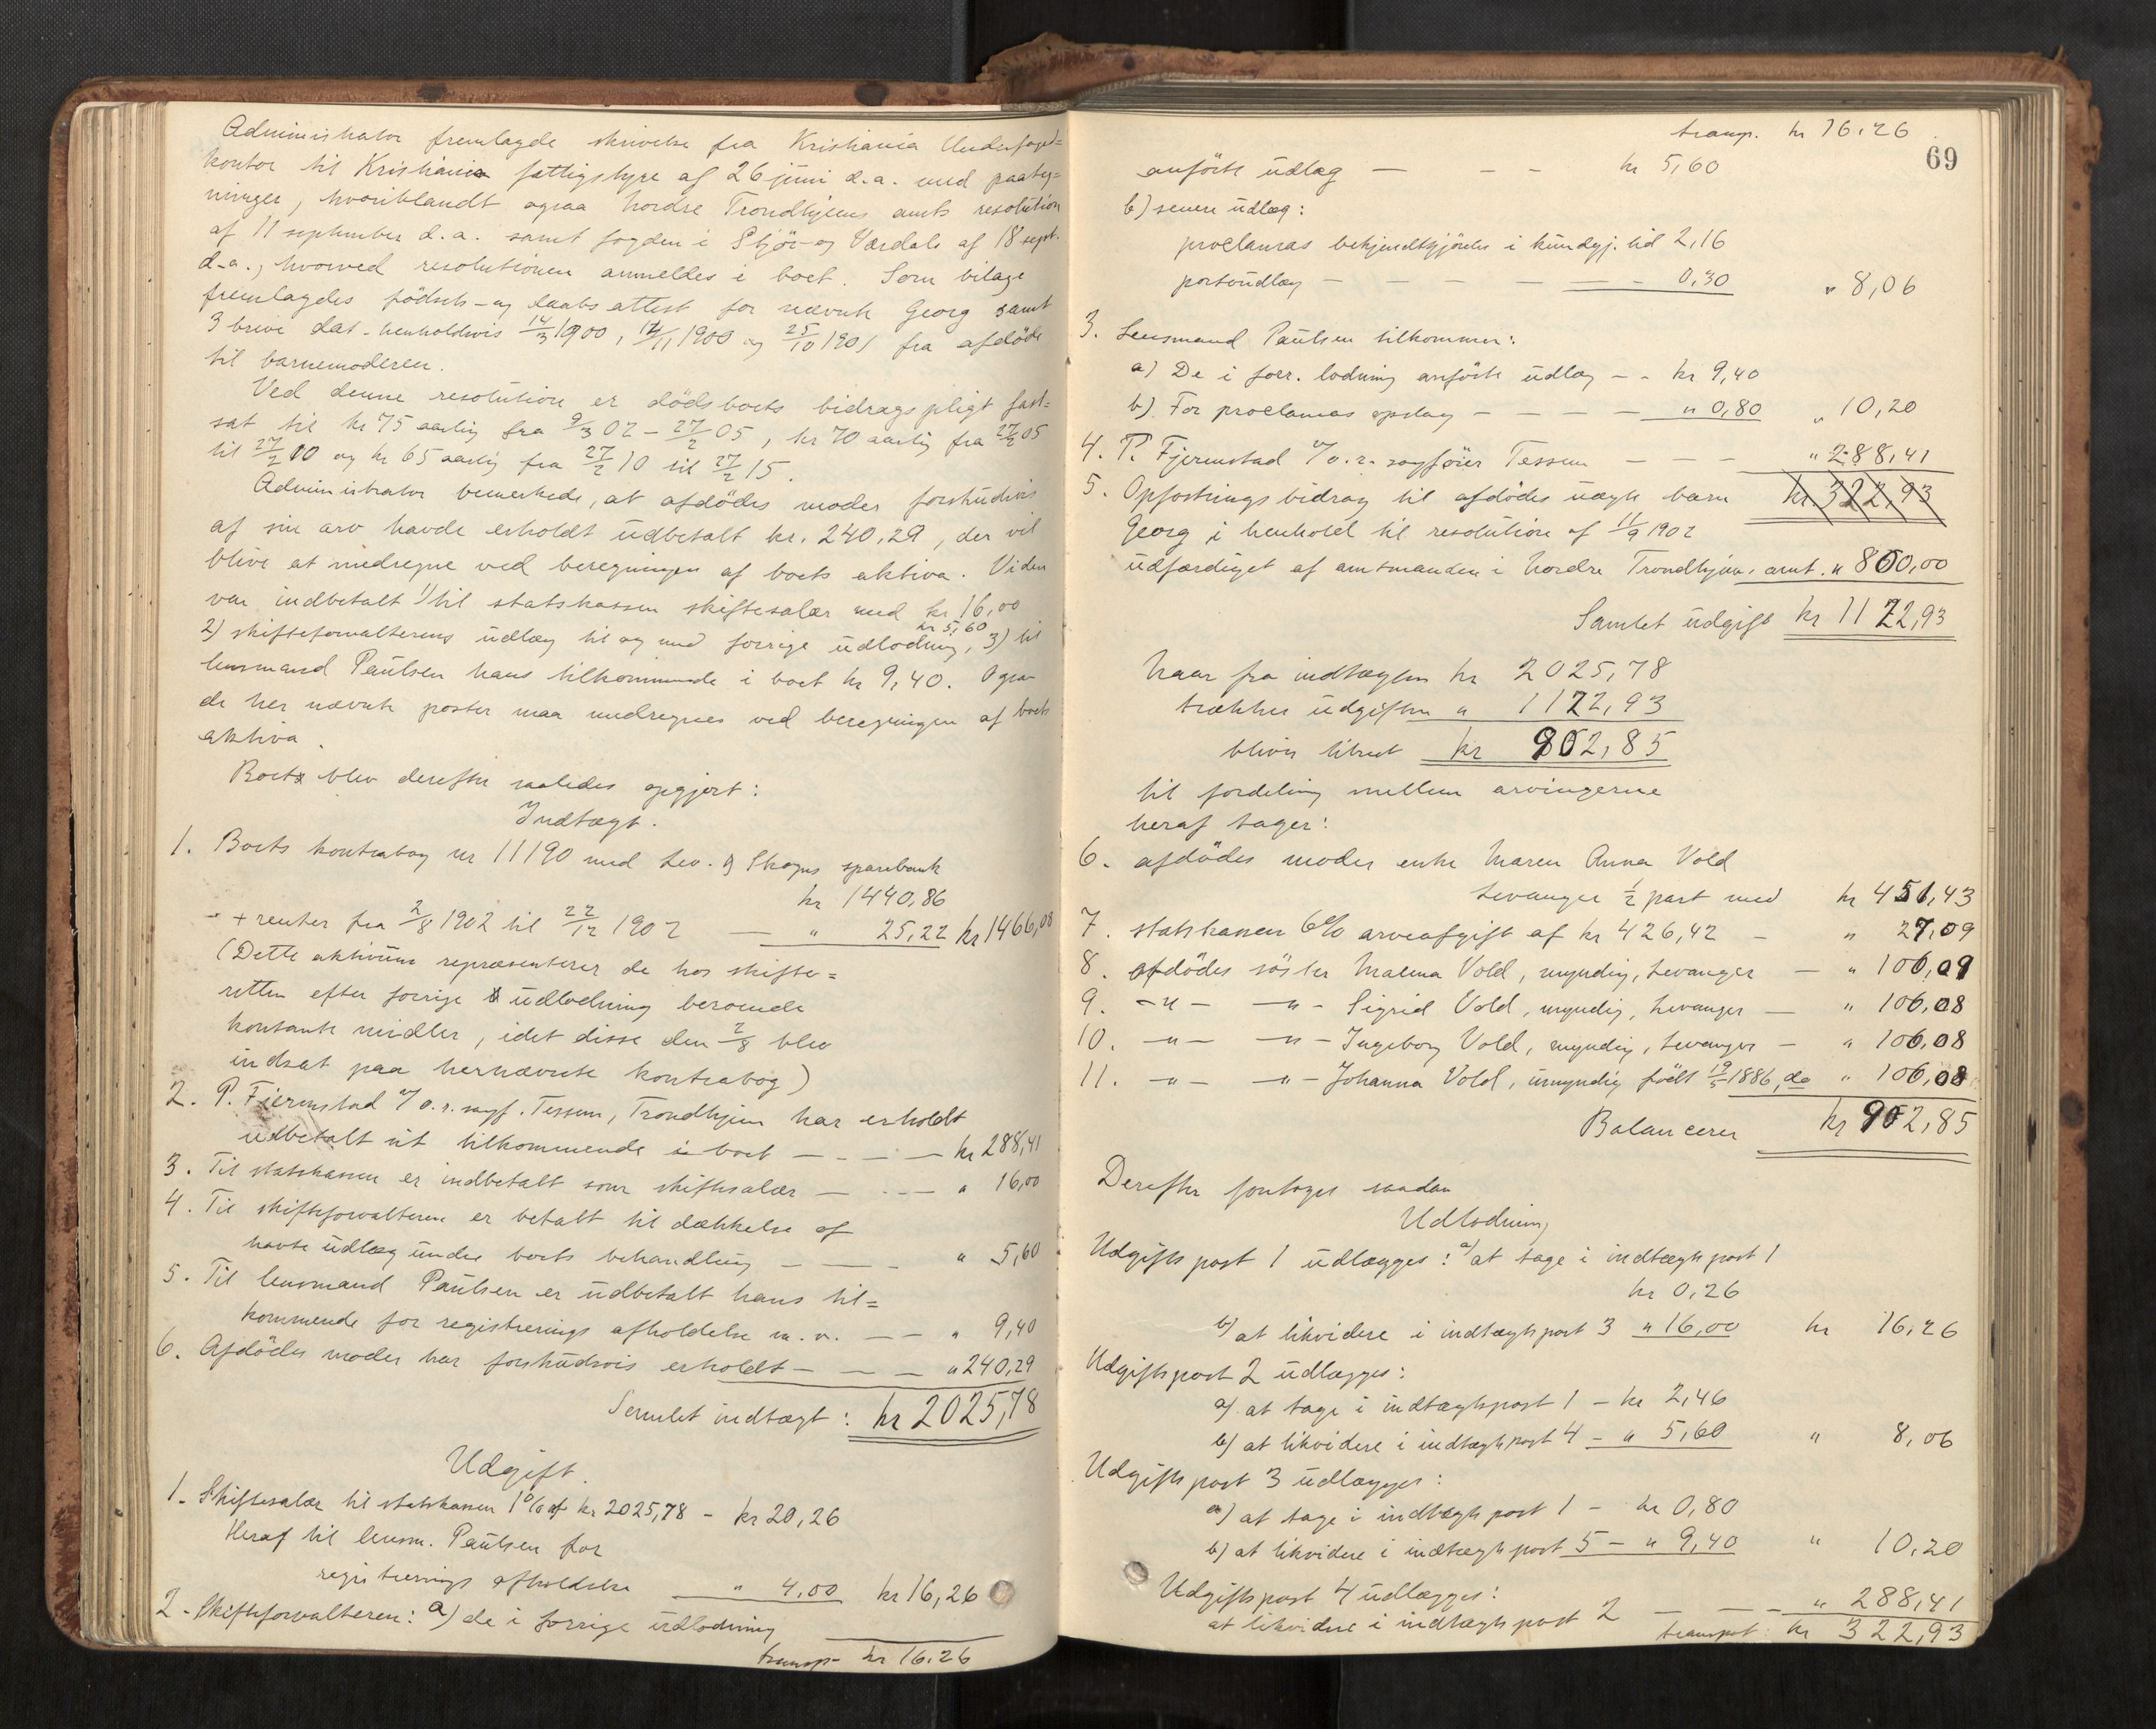 Administrator fremlagde skrivelse fra Kristiania Underfoged=
kontor til Kristiania fattigstyre af 26 juni d.a. med paateg=
ninger, hvoriblandt ogsaa Nordre Trondhjems amts resolution
af 11 september d.a. samt fogden i Stjør- og Værdals af 18 sept.
d.a., hvorved resolutionen anmeldes i boet. Som bilage
fremlagdes födsels- og daabsattest for nævnte Georg samt
3 breve dat. henholdsvis 14/3 1900, 14/11 1900 og 25/10 1901 fra afdöde
til barnemoderen.
Ved denne resolution er dödsboets bidragspligt fast=
sat til kr 75 aarlig fra 9/3 02 - 27/2 05, kr 70 aarlig fra 27/2 05
til 27/2 10 og kr 65 aarlig fra 27/2 10 til 27/2 15.
Administrator bemerkede, at afdödes moder forskudsvis
af sin arv havde erholdt udbetalt kr. 240,29, der vil
blive at medregne ved beregningen af boets aktiva. Viden
var indbetalt 1) til statskassen skiftesalær med kr 16,00
2) skifteforvalterens udlæg til og med forrige udlodning, kr 5,60 3) til
lensmand Paulsen hans tilkommende i boet kr 9,40. Ogsaa
de her nævnte poster maa medregnes ved beregningen af boets
aktiva.
Boets blev derefter saaledes opgjort:
Indtægt.
1. Boets kontrabog nr 11190 med Lev. og Skogns sparebank
kr 1440,86
+ renter fra 2/8 1902 til 22/12 1902 — " 25,22 kr 1466,08
(Dette aktivum repræsenterer de hos skifte=
retten efter forrige udlodning beroende
kontante midler, idet disse den 2/8 blev
indsat paa hernævnte kontrabog)
2. P. Fjermstad v/ o.r.sagf. Tessem, Trondhjem har erholdt
udbetalt sit tilkommende i boet — — — kr 288,41
3. Til statskassen er indbetalt som skiftesalær — — — " 16,00
4. Til skifteforvalteren er betalt til dækkelse af
havte udlæg under boets behandling — — — " 5,60
5. Til lensmand Paulsen er udbetalt hans til=
kommende for registrerings afholdelse m.v. — — " 9,40
6. Afdödes moder har forskudsvis erholdt — — — " 240,29
Samlet indtægt: kr 2025,78
Udgift.
1. Skiftesalær til statskassen 1% af kr 2025,78 - kr 20,26
Heraf til lensm. Paulsen for
registrerings afholdelse — " 4,00 kr 16,26
2. Skifteforvalteren: a) de i forrige udlodning
transp. kr 16.26
69
transp. kr 16.26
anförte udlæg — - - kr 5,60
b) senere udlæg:
proclamas bekjendtgjörelse i kundgj. tid 2,16
portoudlæg — — — — — 0,30 " 8,06
3. Lensmand Paulsen tilkommer:
a) De i forr. lodning anförte udlæg - - kr 9,40
b) For proclamas opslag — — — — " 0,80 " 10,20
4. P. Fjermstad v/ o.r. sagförer Tessem — — — " 288,41
5. Opfostringsbidrag til afdödes uægte barn kr 322,93
Georg i henhold til resolution af 11/9 1902
udfærdiget af amtmanden i Nordre Trondhjems amt. " 800,00
Samlet udgift kr 1122,93
Naar fra indtægten kr 2025,78
trækkes udgiften " 1122,93
bliver tilrest kr 902,85
til fordeling mellem arvingerne
heraf tager:
6. afdödes moder enke Maren Anna Vold
Levanger 1/2 part med kr 451,43
7. statskassen 6% arveafgift af kr 426,42 — " 27,09
8. afdödes söster Malena Vold, myndig, Levanger — " 106,09
9. -"- -"- Sigrid Vold, myndig, Levanger — " 106,08
10. -"- -"- Ingeborg Vold, myndig, Levanger — " 106,08
11. -"- -"- Johanna Vold, umyndig födt 19/5 1886, do " 106,08
Balancerer kr 902,85
Derefter foretoges saadan
Udlodning
Udgiftspost 1 udlægges: a) at tage i indtægtspost 1
kr 0,26
b) at likvidere i indtægtspost 3 " 16,00 kr 16,26
Udgiftspost 2 udlægges:
a) at tage i indtægtspost 1 - kr 2,46
b) at likvidere i indtægtspost 4 - " 5,60 " 8,06
Udgiftspost 3 udlægges:
a) at tage i indtægtspost 1 - kr 0,80
b) at likvidere i indtægtspost 5 - " 9,40 " 10,20
Udgiftspost 4 udlægges:
at likvidere i indtægtspost 2 — — — " 288,41
transport: kr 322,93